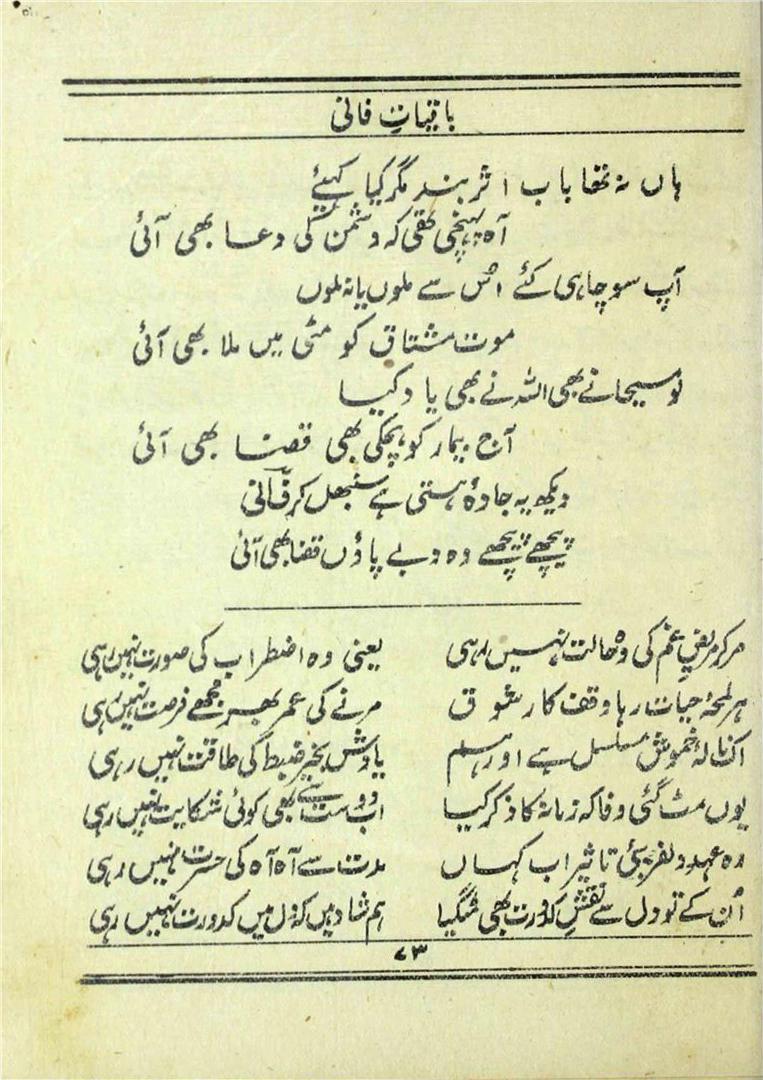 باقیاتِ فانی
ہاں نہ تھا باب اثر بند مگر کیا کہیئے
آہ پہنچی تھی کہ دشمن کی دعا بھی آئی
آپ سوچا ہی کئے اُس سے ملوں یا نہ ملوں
موت مشتاق کو مٹی میں ملا بھی آئی
لو مسیحا نے بھی اللہ نے بھی یاد کیا
آج بیمار کو ہچکی بھی قضا بھی آئی
دیکھ یہ جادۂ ہستی ہے سنبھل کر فانی
پیچھے پیچھے وہ دبے پاؤں قضا بھی آئی
مر کر مریضِ غم کی وہ حالت نہیں رہی یعنی وہ اضطراب کی صورت نہیں رہی
ہر لمحۂ حیات رہا وقف کار شوق مرنے کی عمر بھر مجھے فرصت نہیں رہی
اک نالۂ خموش مسلسل ہے اور ہم یادش بخیر ضبط کی طاقت نہیں رہی
یوں مٹ گئی وفا کہ زمانہ کا ذکر کیا اب دوست سے بھی کوئی شکایت نہیں رہی
وہ عہد دلفریبئی تاثیر اب کہاں مدت سے آہ آہ کی حسرت نہیں رہی
اُن کے تو دل سے نقشِ کدورت بھی مٹگیا ہم شاد ہیں کہ دل میں کدورت نہیں رہی
۷۳